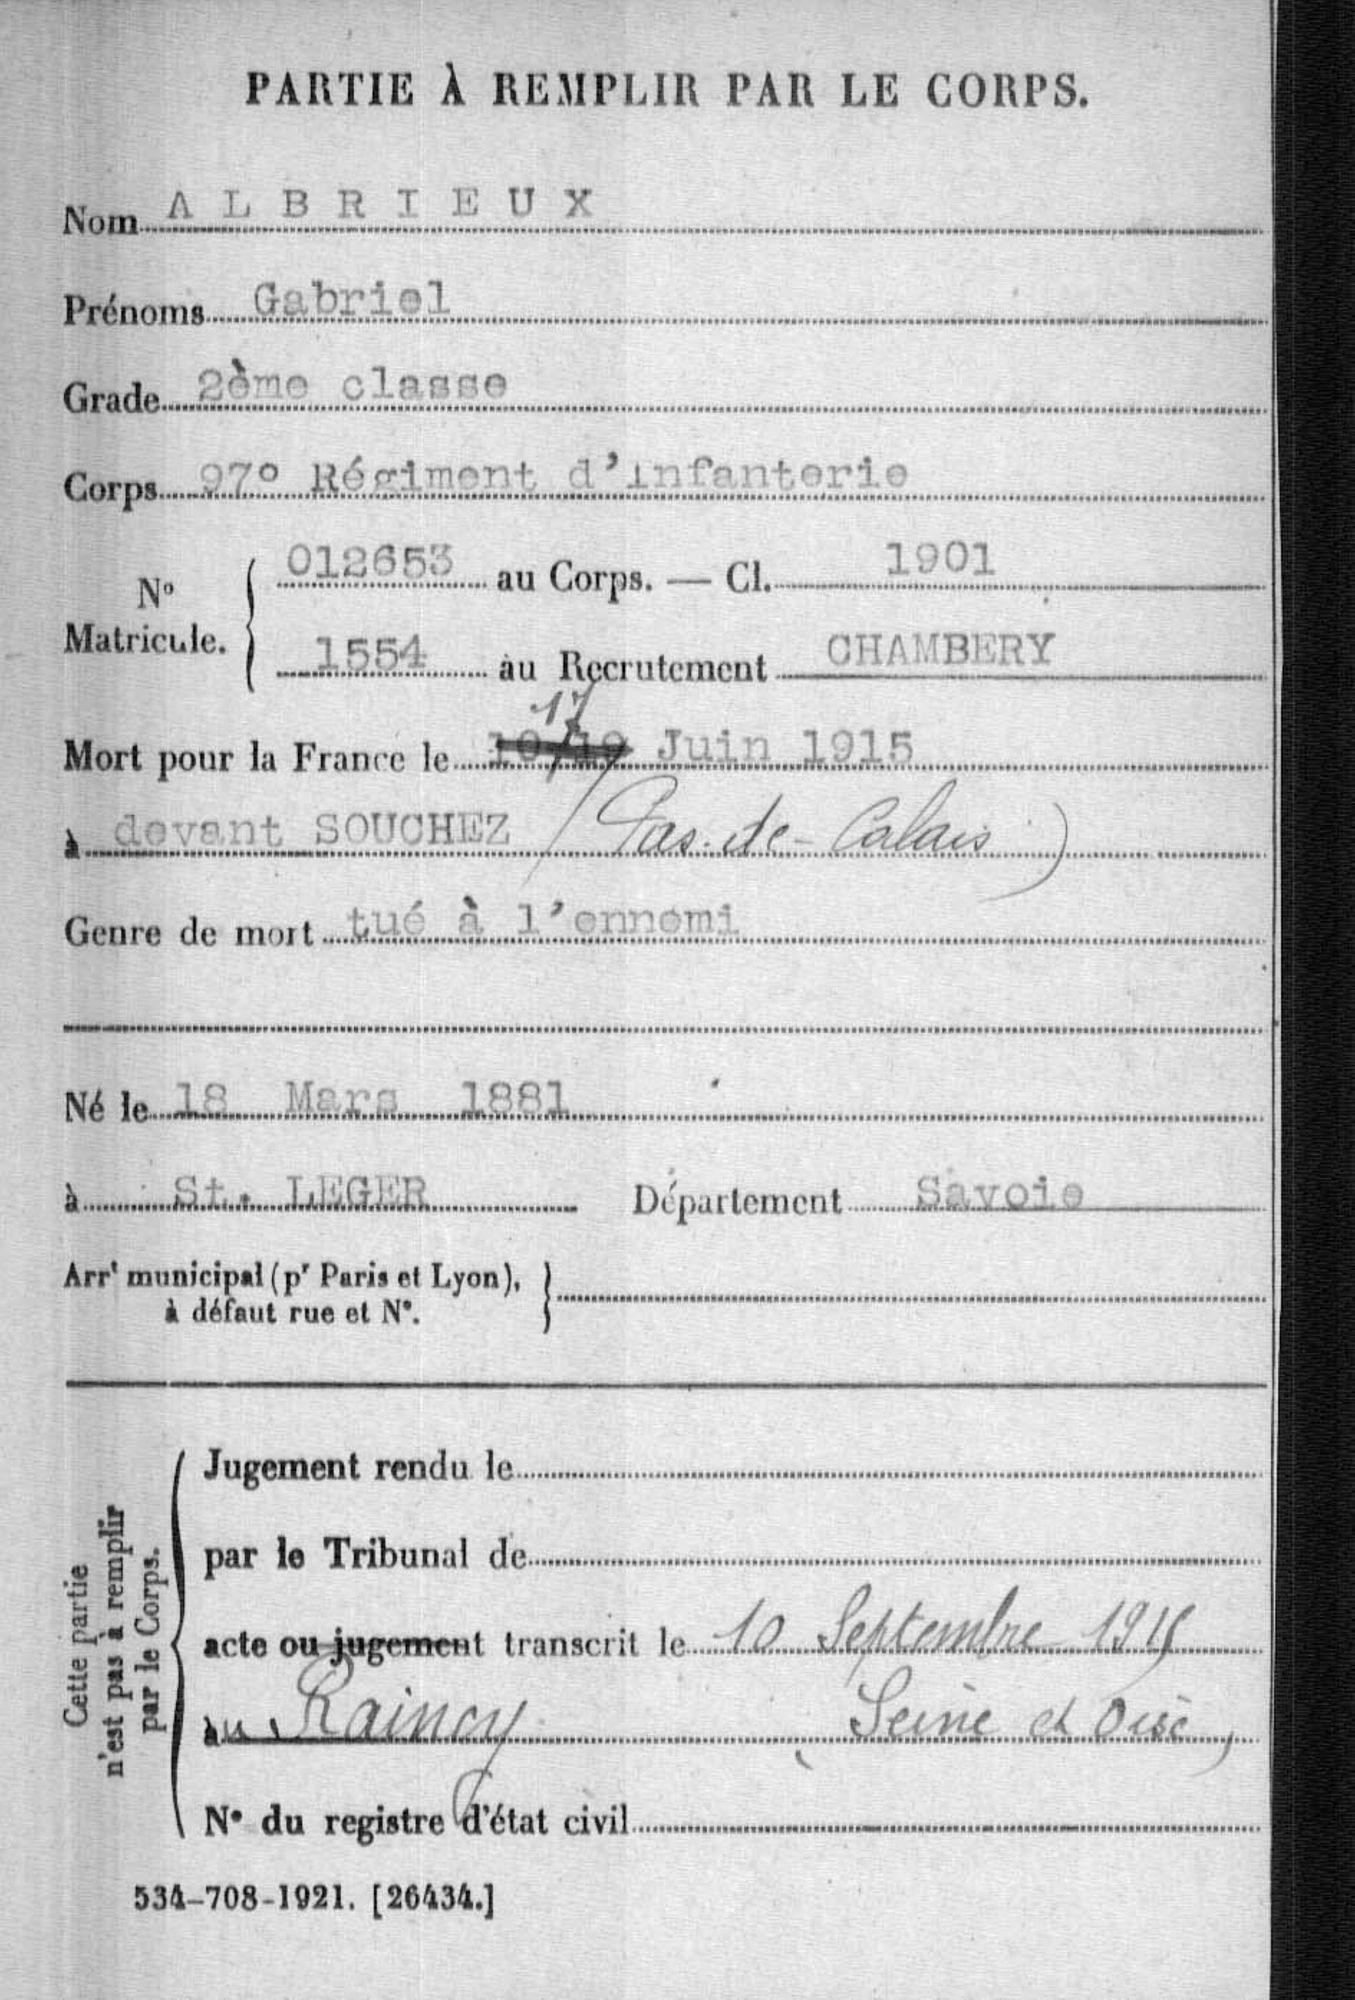 PARTIE À REMPLIR PAR LE CORPS.
Nom ALBRIEUX
Prénoms Gabriel
Grade 2ème classe
Corps 97° Régiment d'infanterie
N° Matricule. 012653 au Corps. — Cl. 1901
1554 au Recrutement CHAMBERY
17
Mort pour la France le Juin 1915
à devant SOUCHEZ (Pas-de-Calais)
Genre de mort tué à l'ennemi
Né le 18 Mars 1881
à St. LEGER Département Savoie
Arrt municipal (pr Paris et Lyon),
à défaut rue et N°.
Cette partie
n'est pas à remplir
par le Corps.
Jugement rendu le
par le Tribunal de
acte ou jugement transcrit le 10 Septembre 1915
au Raincy Seine et Oise
N° du registre d'état civil
534-708-1921. [26434.]